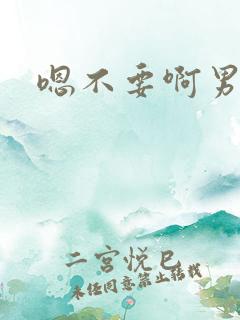 嗯不要啊男
二宫悦巳
未经同意禁止转载